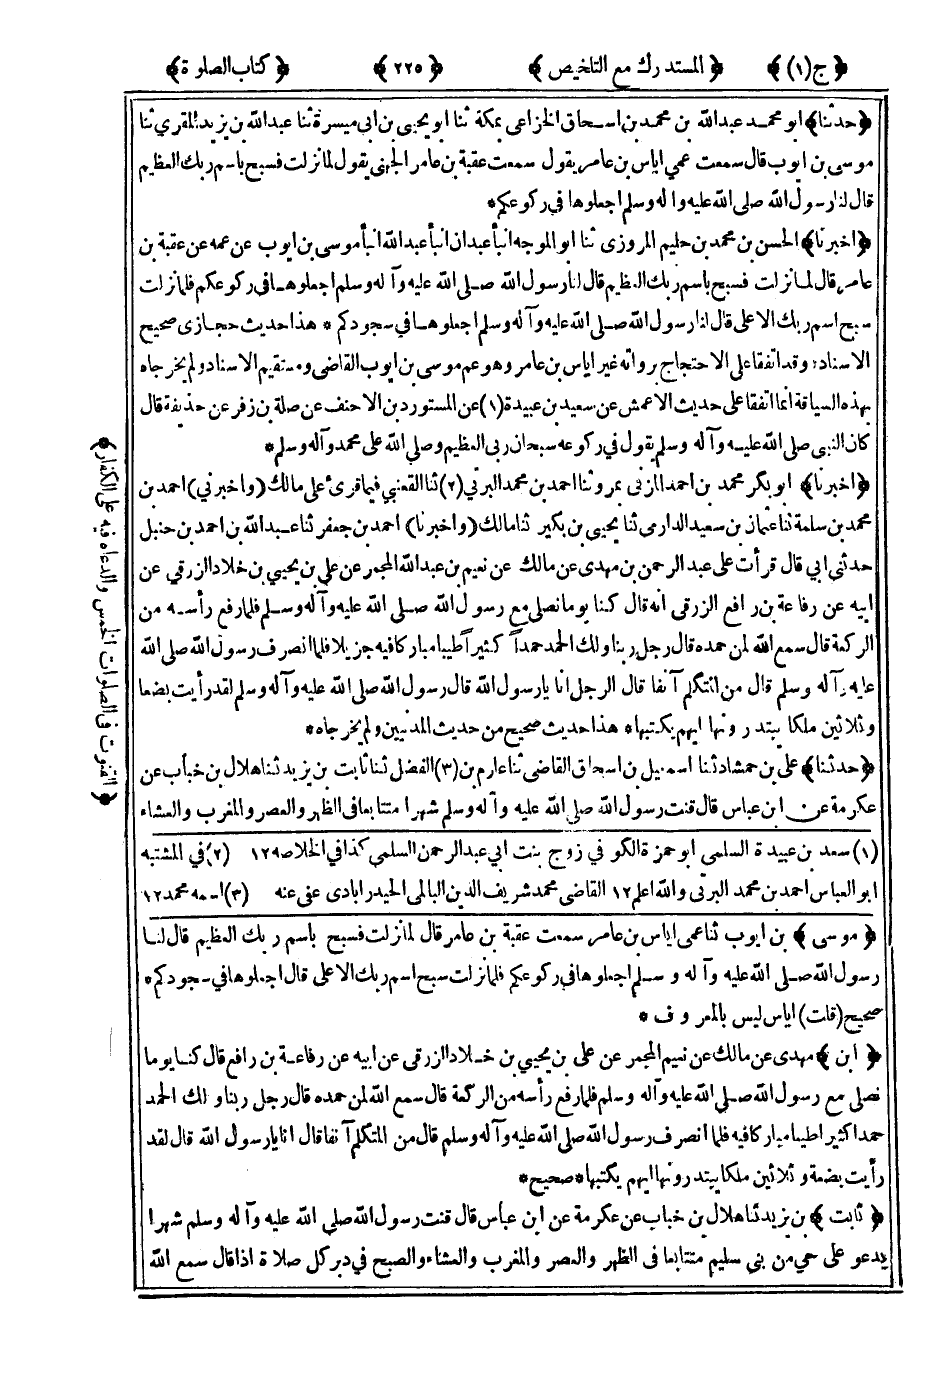 ﴿ ج(١) ﴾ ﴿ المستدرك مع التلخيص ﴾ ﴿ ٢٢٥ ﴾ ﴿ كتاب الصلوة ﴾
﴿حدثنا﴾ ابو محمد عبدالله بن محمد بن اسحاق الخزاعى بمكة ثنا ابو يحيى بن ابى ميسرة ثنا عبدالله بن يزيد المقري ثنا
موسى بن ايوب قال سمعت عمي اياس بن عامر يقول سمعت عقبة بن عامر الجهني يقول لما نزلت فسبح باسم ربك العظيم
قال لنا رسول الله صلى الله عليه وآله وسلم اجعلوها في ركوعكم*
﴿اخبرنا﴾ الحسن بن محمد بن حليم المروزى ثنا ابو الموجه انبأ عبدان انبأ عبدالله انبأ موسى بن ايوب عن عمه عن عقبة بن
عامر قال لما نزلت فسبح باسم ربك العظيم قال لنا رسول الله صلى الله عليه وآله وسلم اجعلوها فى ركوعكم فلما نزلت
سبح اسم ربك الاعلى قال لنا رسول الله صلى الله عليه وآله وسلم اجعلوها في سجودكم * هذا حديث حجازى صحيح
الاسناد وقد اتفقا على الاحتجاج برواته غير اياس بن عامر وهو عم موسى بن ايوب القاضى ومستقيم الاسناد ولم يخرجاه
بهذه السياقة انما اتفقا على حديث الاعمش عن سعيد بن عبيدة (١) عن المستورد بن الاحنف عن صلة بن زفر عن حذيفة قال
كان النبى صلى الله عليه وآله وسلم يقول في ركوعه سبحان ربى العظيم وصلى الله على محمد وآله وسلم*
﴿اخبرنا﴾ ابو بكر محمد بن احمد المزنى بمرو ثنا احمد بن محمد البرتي (٢) ثنا القعنبي فيما قرئ على مالك (واخبرني) احمد بن
محمد بن سلمة ثنا عثمان بن سعيد الدارمى ثنا يحيى بن بكير ثنا مالك (واخبرنا) احمد بن جعفر ثنا عبدالله بن احمد بن حنبل
حدثنى ابي قال قرأت على عبد الرحمن بن مهدى عن مالك عن نعيم بن عبدالله المجمر عن علي بن يحيى بن خلاد الزرقي عن
ابيه عن رفاعة بن رافع الزرقى انه قال كنا يوما نصلى مع رسول الله صلى الله عليه وآله وسلم فلما رفع رأسه من
الركعة قال سمع الله لمن حمده قال رجل ربنا ولك الحمد حمداً كثيراً طيبا مباركا فيه جزيلا فلما انصرف رسول الله صلى الله
عليه وآله وسلم قال من المتكلم آنفا قال الرجل انا يا رسول الله قال رسول الله صلى الله عليه وآله وسلم لقد رأيت بضعا
وثلاثين ملكا يبتدرونها ايهم يكتبها* هذا حديث صحيح من حديث المدنيين ولم يخرجاه*
﴿حدثنا﴾ على بن حمشاد ثنا اسمعيل بن اسحاق القاضى ثنا عارم بن (٣) الفضل ثنا ثابت بن يزيد ثنا هلال بن خباب عن
عكرمة عن ابن عباس قال قنت رسول الله صلى الله عليه وآله وسلم شهرا متتابعا فى الظهر والعصر والمغرب والعشاء
﴿ القنوت فى الصلوات الخمس والدعاء فيه على الكفار ﴾
(١) سعد بن عبيدة السلمى ابو حمزة الكوفي زوج بنت ابي عبدالرحمن السلمى كذا فى الخلاصه ١٢ (٢) في المشتبه
ابو العباس احمد بن محمد البرتى والله اعلم ١٢ القاضى محمد شريف الدين البالمى الحيدرابادى عفى عنه (٣) اسمه محمد ١٢
﴿ موسى ﴾ بن ايوب ثنا عمى اياس بن عامر سمعت عقبة بن عامر قال لما نزلت فسبح باسم ربك العظيم قال لنا
رسول الله صلى الله عليه وآله وسلم اجعلوها في ركوعكم فلما نزلت سبح اسم ربك الاعلى قال اجعلوها في سجودكم*
صحيح (قلت) اياس ليس بالمعروف *
﴿ ابن ﴾ مهدى عن مالك عن نعيم المجمر عن على بن يحيي بن خلاد الزرقى عن ابيه عن رفاعة بن رافع قال كنا يوما
نصلى مع رسول الله صلى الله عليه وآله وسلم فلما رفع رأسه من الركعة قال سمع الله لمن حمده قال رجل ربنا ولك الحمد
حمدا كثيرا طيبا مباركا فيه فلما انصرف رسول الله صلى الله عليه وآله وسلم قال من المتكلم آنفا قال انا يا رسول الله قال لقد
رأيت بضعة وثلاثين ملكا يبتدرونها ايهم يكتبها* صحيح*
﴿ ثابت ﴾ بن يزيد ثنا هلال بن خباب عن عكرمة عن ابن عباس قال قنت رسول الله صلى الله عليه وآله وسلم شهرا
يدعو على حي من بني سليم متتابعا فى الظهر والعصر والمغرب والعشاء والصبح في دبر كل صلاة اذا قال سمع الله